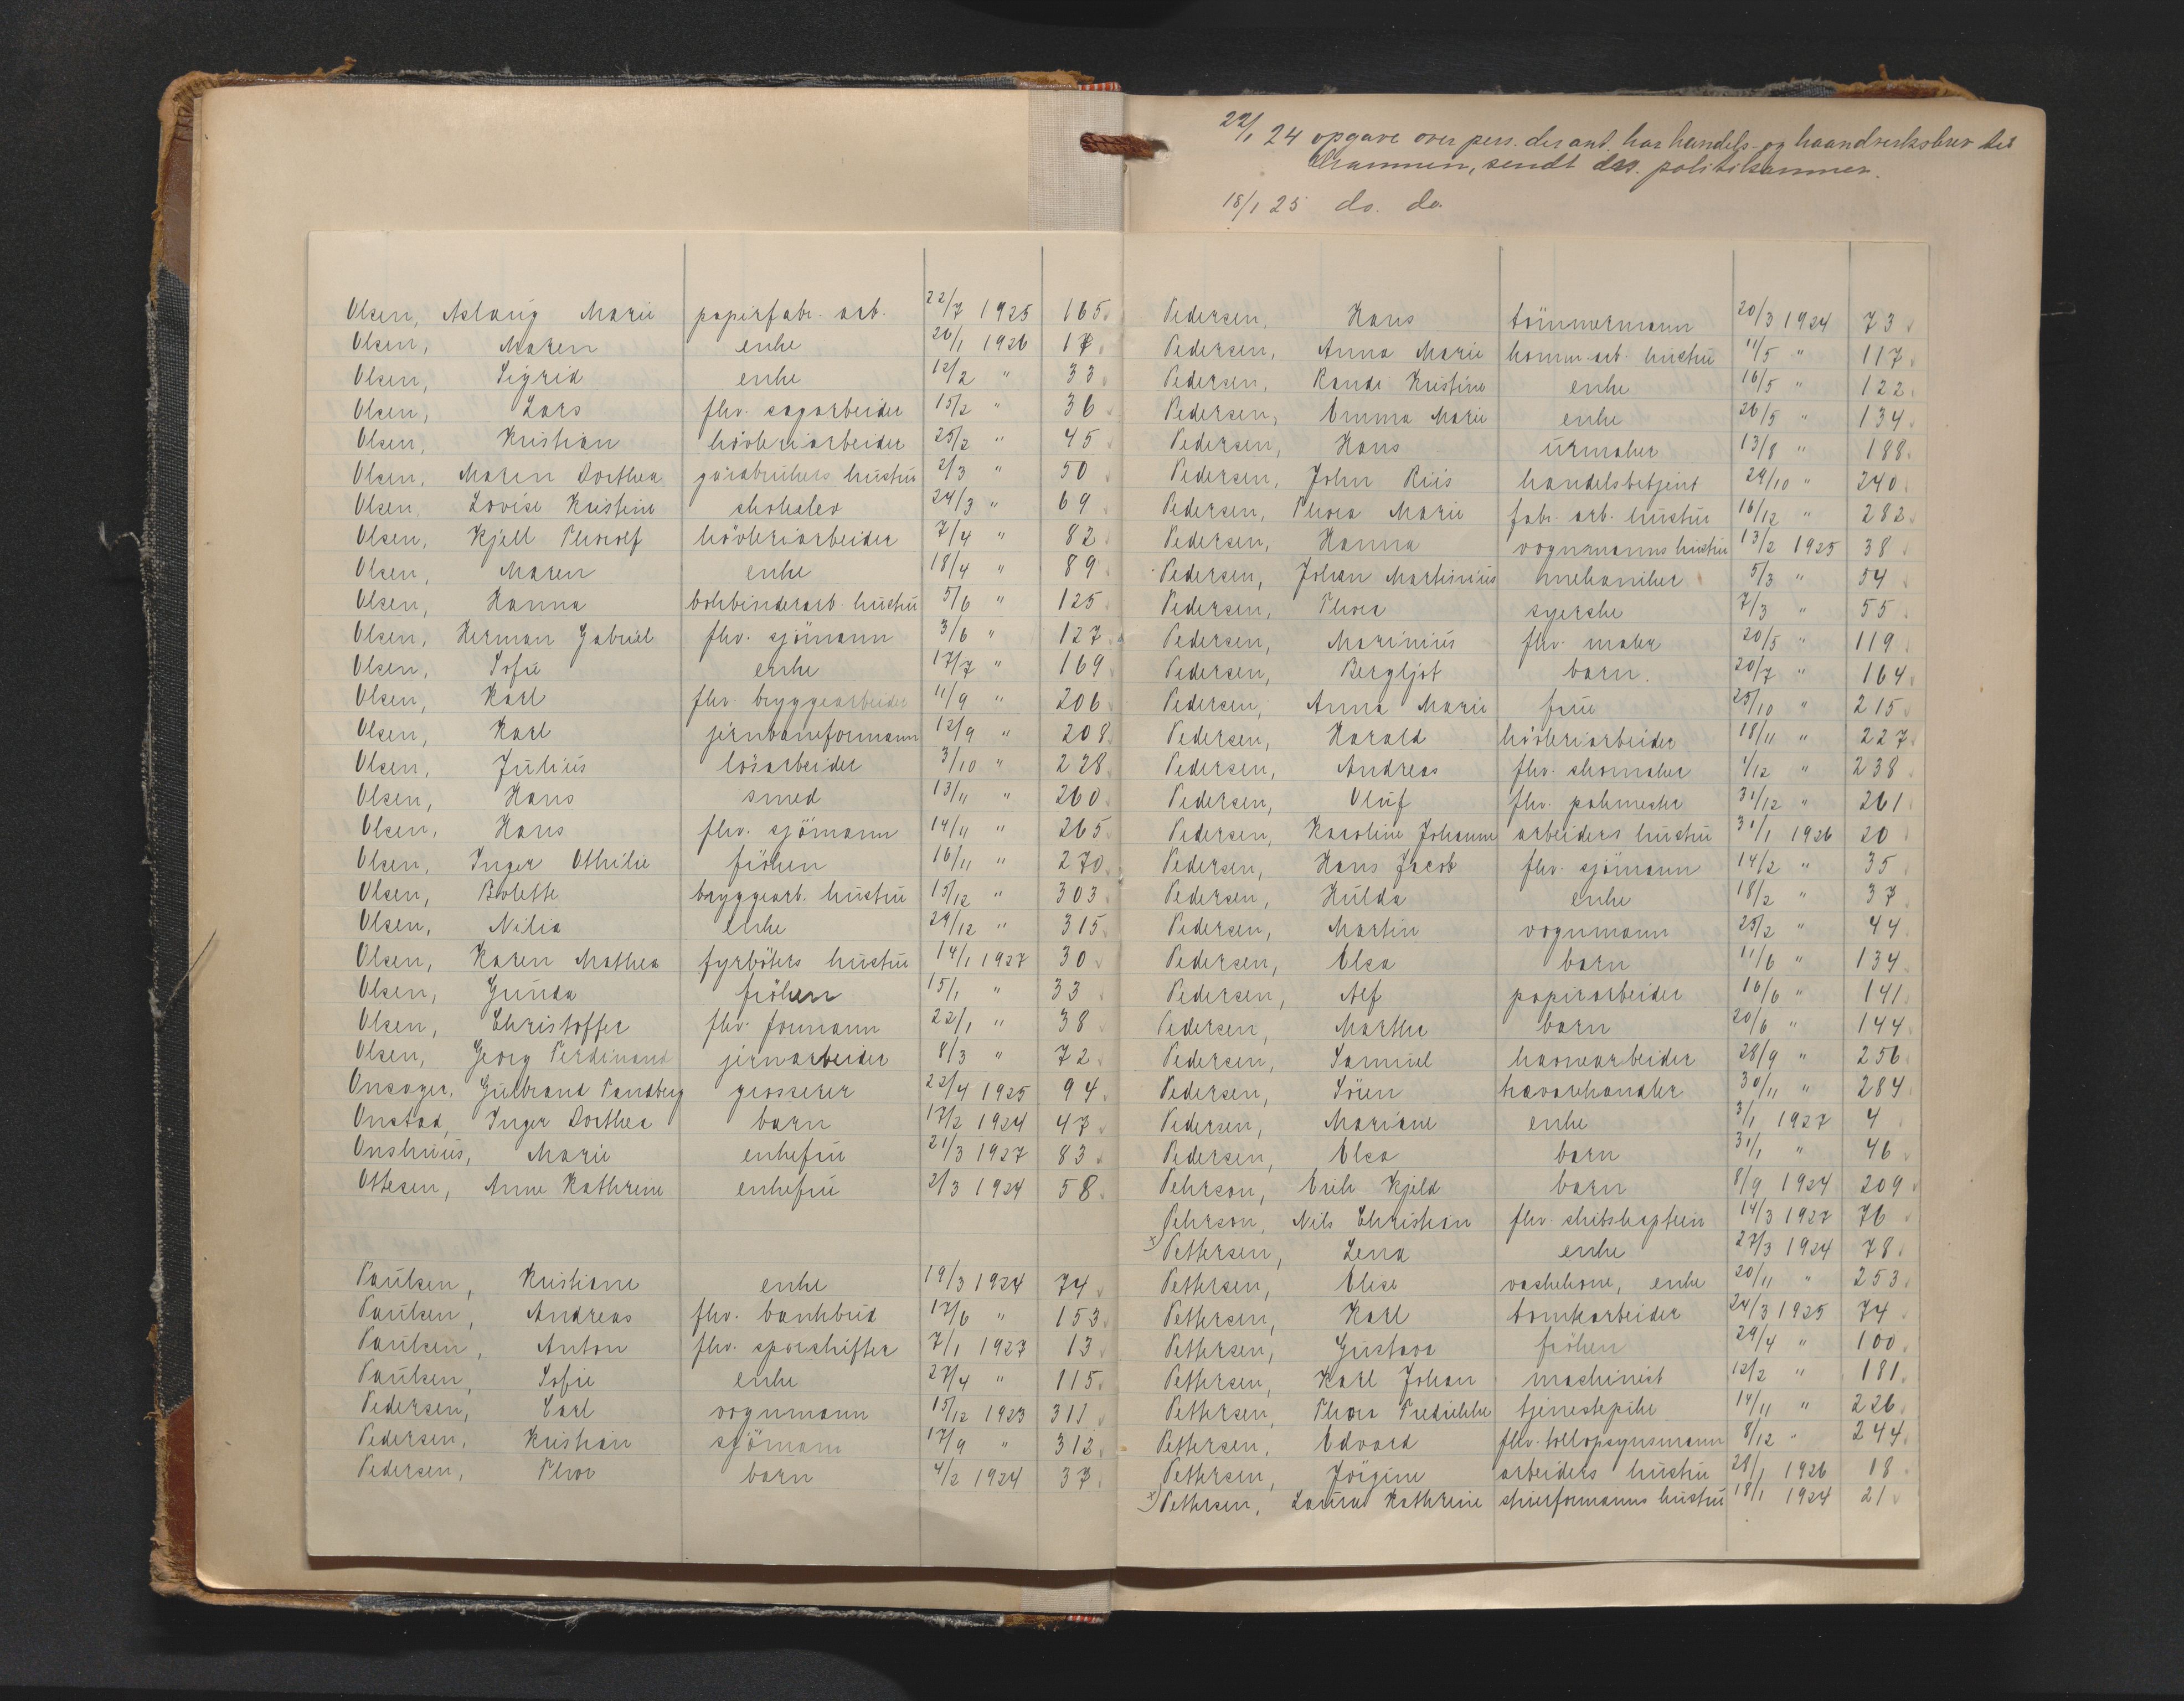 22/1 24 opgave over pers. der ant. har handels- og haandverksbrev til
Drammen, sendt drs. politikammer.
18/1 25 do. do.
Olsen, Aslaug Marie papirfabr. arb. 22/7 1925 165
Olsen, Maren enke 26/1 1926 17
Olsen, Sigrid enke 12/2 " 33
Olsen, Lars fhv. sagarbeider 15/2 " 36
Olsen, Kristian hövleriarbeider 25/2 " 45
Olsen, Maren Dorthea gårdbrukers hustru 2/3 " 50
Olsen, Lovise Kristine skoleelev 24/3 " 69
Olsen, Kjell Thorolf hövleriarbeider 7/4 " 82
Olsen, Maren enke 18/4 " 89
Olsen, Hanna bokbinderarb. hustru 5/6 " 125
Olsen, Herman Gabriel fhv. sjömann 3/6 " 127
Olsen, Sofie enke 17/7 " 169
Olsen, Karl fhv. bryggearbeider 11/9 " 206
Olsen, Karl jernbaneformann 12/9 " 208
Olsen, Julius lösarbeider 3/10 " 228
Olsen, Hans smed 13/11 " 260
Olsen, Hans fhv. sjömann 14/11 " 265
Olsen, Inger Othilie fröken 16/11 " 270
Olsen, Bolette bryggearb. hustru 15/12 " 303
Olsen, Nilia enke 29/12 " 315
Olsen, Karen Mathea fyrböters hustru 14/1 1927 30
Olsen, Gunda fröken 15/1 " 33
Olsen, Christoffer fhv. formann 22/1 " 38
Olsen, Georg Ferdinand jernarbeider 8/3 " 72
Onsager, Gulbrand Tandberg grosserer 22/4 1925 94
Onstad, Inger Dorthea barn 17/2 1924 47
Onshuus, Marie enkefru 21/3 1927 83
Ottesen, Anne Kathrine enkefru 2/3 1924 58
Paulsen, Kristiane enke 19/3 1924 74
Paulsen, Andreas fhv. bankbud 17/6 " 153
Paulsen, Anton fhv. sporskifter 7/1 1927 13
Paulsen, Sofie enke 27/4 " 115
Pedersen, Carl vognmann 15/12 1923 311
Pedersen, Kristian sjömann 17/9 " 312
Pedersen, Thor barn 4/2 1924 37
Pedersen, Hans tömmermann 20/3 1924 73
Pedersen, Anna Marie komm. arb. hustru 11/5 " 117
Pedersen, Randi Kristine enke 16/5 " 122
Pedersen, Emma Marie enke 26/5 " 134
Pedersen, Hans urmaker 13/8 " 188
Pedersen, John Riis handelsbetjent 29/10 " 240
Pedersen, Thora Marie fabr. arb. hustru 16/12 " 282
Pedersen, Hanna vognmanns hustru 13/2 1925 38
Pedersen, Johan Martinius mekaniker 5/3 " 54
Pedersen, Thora syerske 7/3 " 55
Pedersen, Marinius fhv. maler 20/5 " 119
Pedersen, Bergljot barn. 20/7 " 164
Pedersen, Anna Marie frue 25/10 " 215
Pedersen, Harald hövleriarbeider 18/11 " 227
Pedersen, Andreas fhv. skomaker 1/12 " 238
Pedersen, Oluf fhv. pakmester 31/12 " 261
Pedersen, Karoline Johanne arbeiders hustru 31/1 1926 20
Pedersen, Hans Jacob fhv. sjömann 14/2 " 35
Pedersen, Hulda enke 18/2 " 37
Pedersen, Martin vognmann 25/2 " 44
Pedersen, Elsa barn 11/6 " 134
Pedersen, Alf papirarbeider 16/6 " 141
Pedersen, Marthe barn 20/6 " 144
Pedersen, Samuel havnearbeider 28/9 " 256
Pedersen, Sören 30/11 " 284
Pedersen, Mariane enke 3/1 1927 4
Pedersen, Elsa barn 31/1 " 46
Pehrson, Erik Kjeld barn 8/9 1924 209
Pehrson, Nils Christian fhv. skibskaptein 14/3 1927 76
x) Pettersen, Lena enke 27/3 1924 78
Pettersen, Elise vaskekone, enke 20/11 " 253
Pettersen, Karl tomtearbeider 24/3 1925 74
Pettersen, Gustava fröken 29/4 " 100
Pettersen, Karl Johan maskinist 12/2 " 181
Pettersen, Thora Fredrikke tjenestepike 14/11 " 226
Pettersen, Edvard fhv. tollopsynsmann 8/12 " 244
Pettersen, Jörgine arbeiders hustru 28/1 1926 18
x) Pettersen, Laura Kathrine skierformanns hustru 18/1 1924 21